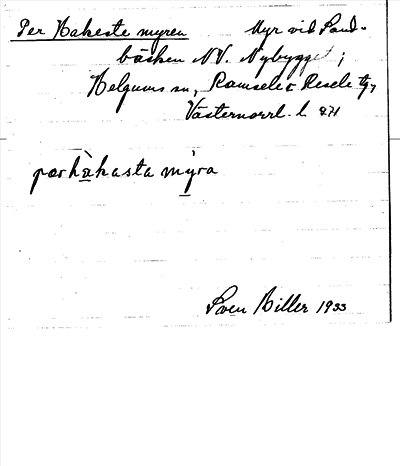 Per Hakeste myren Myr vid Sand-
bäcken NV. Nybygget;
Helgums sn, Ramsele o Resele tg,
Västernorrl. l.
pærhàkasta mỳra
Sven Biller 1933